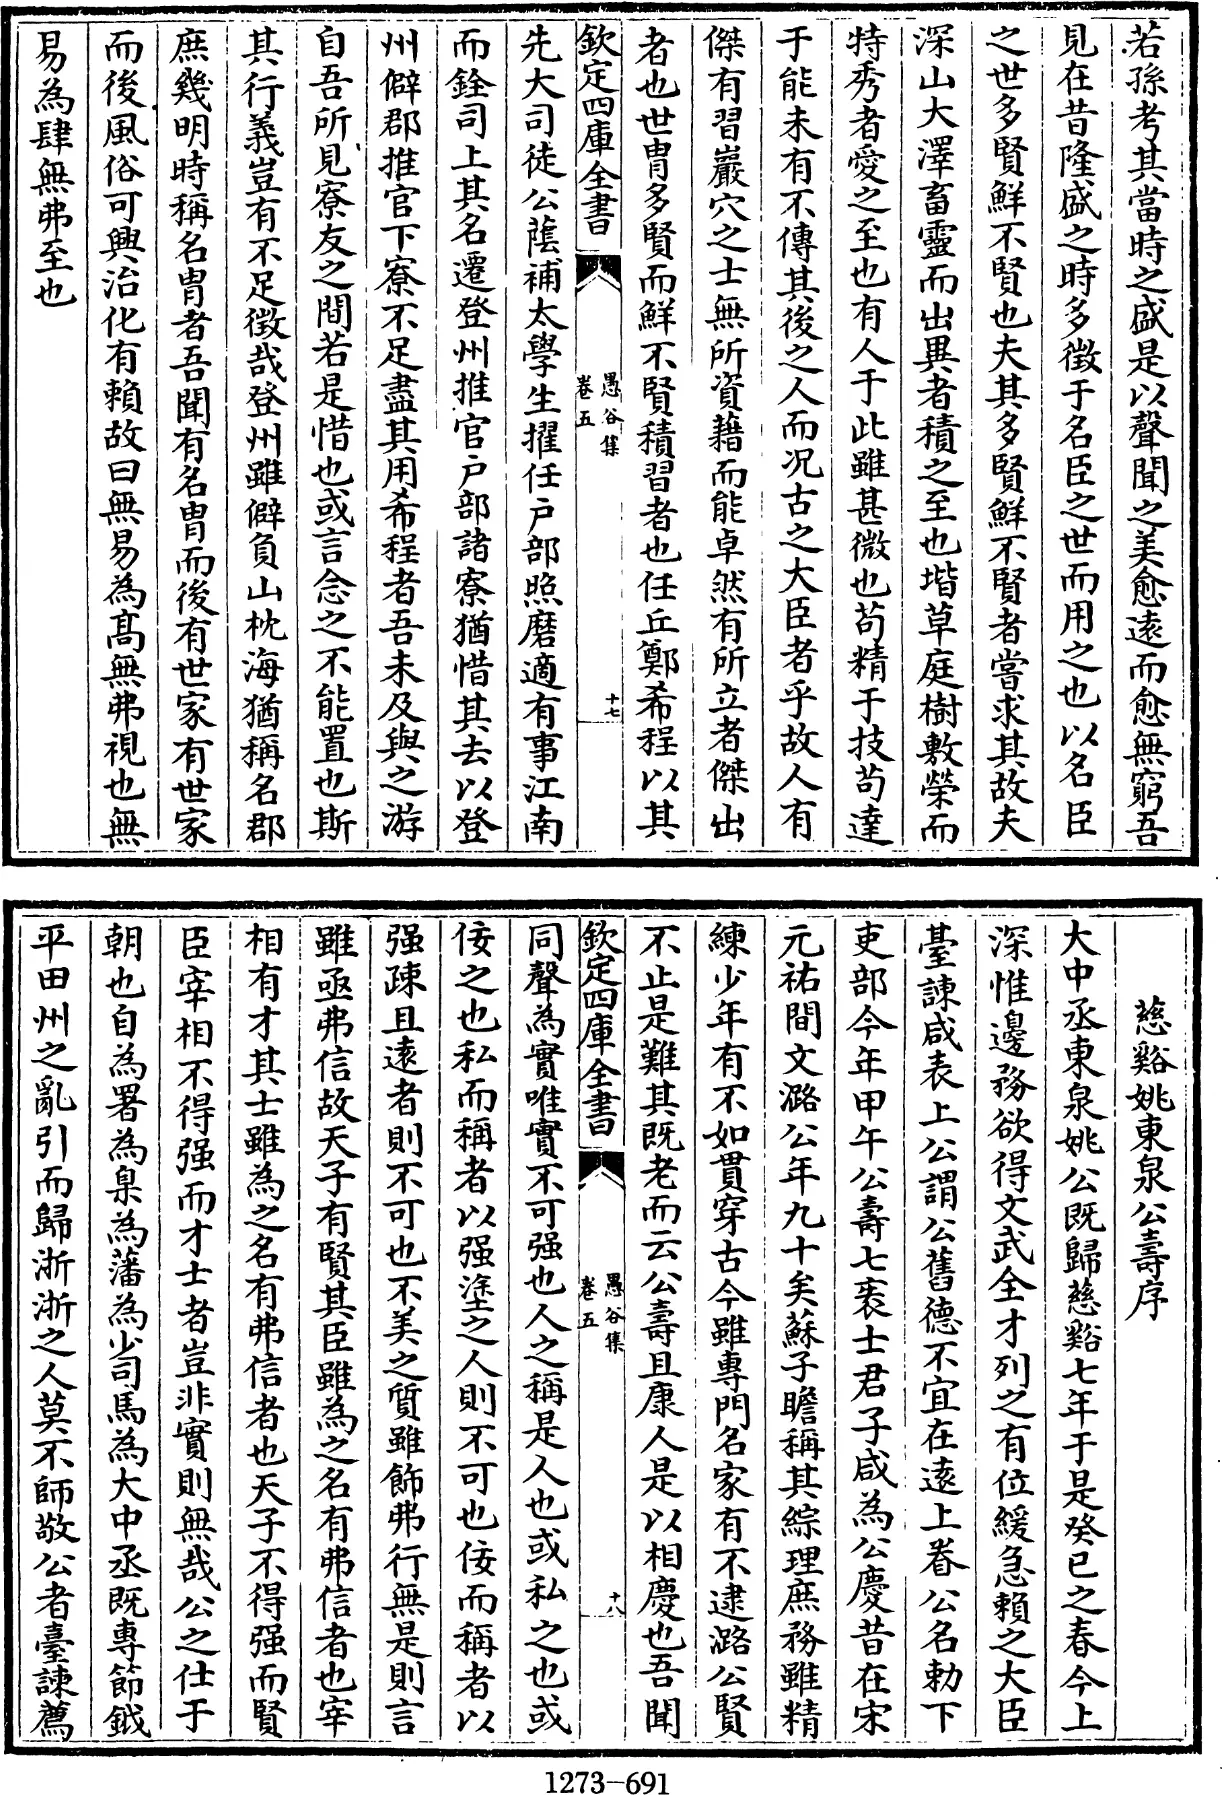 若孫考其當時之盛是以聲聞之美愈遠而愈無窮吾
見在昔隆盛之時多徵于名臣之世而用之也以名臣
之世多賢鮮不賢也夫其多賢鮮不賢者嘗求其故夫
深山大澤畜靈而出異者積之至也堦草庭樹敷榮而
特秀者愛之至也有人于此雖甚微也苟精于技苟達
于能未有不傳其後之人而况古之大臣者乎故人有
傑有習巖穴之士無所資藉而能卓然有所立者傑出
者也世胄多賢而鮮不賢積習者也任丘鄭希程以其
欽定四庫全書
愚谷集
卷五
十七
先大司徒公蔭補太學生擢任戶部照磨適有事江南
而銓司上其名遷登州推官戶部諸寮猶惜其去以登
州僻郡推官下寮不足盡其用希程者吾未及與之游
自吾所見寮友之間若是惜也或言念之不能置也斯
其行義豈有不足徵哉登州雖僻負山枕海猶稱名郡
庶幾明時稱名胄者吾聞有名胄而後有世家有世家
而後風俗可興治化有賴故曰無易為髙無弗視也無
易為肆無弗至也
慈谿姚東泉公壽序
大中丞東泉姚公既歸慈谿七年于是癸巳之春今上
深惟邊務欲得文武全才列之有位緩急賴之大臣
臺諫咸表上公謂公舊德不宜在遠上眷公名勅下
吏部今年甲午公壽七袠士君子咸為公慶昔在宋
元祐間文潞公年九十矣蘇子瞻稱其綜理庶務雖精
練少年有不如貫穿古今雖專門名家有不逮潞公賢
不止是難其既老而云公壽且康人是以相慶也吾聞
欽定四庫全書
愚谷集
卷五
十八
同聲為實唯實不可强也人之稱是人也或私之也或
佞之也私而稱者以强塗之人則不可也佞而稱者以
强疎且遠者則不可也不美之質雖飾弗行無是則言
雖亟弗信故天子有賢其臣雖為之名有弗信者也宰
相有才其士雖為之名有弗信者也天子不得强而賢
臣宰相不得强而才士者豈非實則無哉公之仕于
朝也自為署為臬為藩為少司馬為大中丞既專節鉞
平田州之亂引而歸浙浙之人莫不師敬公者臺諫薦
1273-691